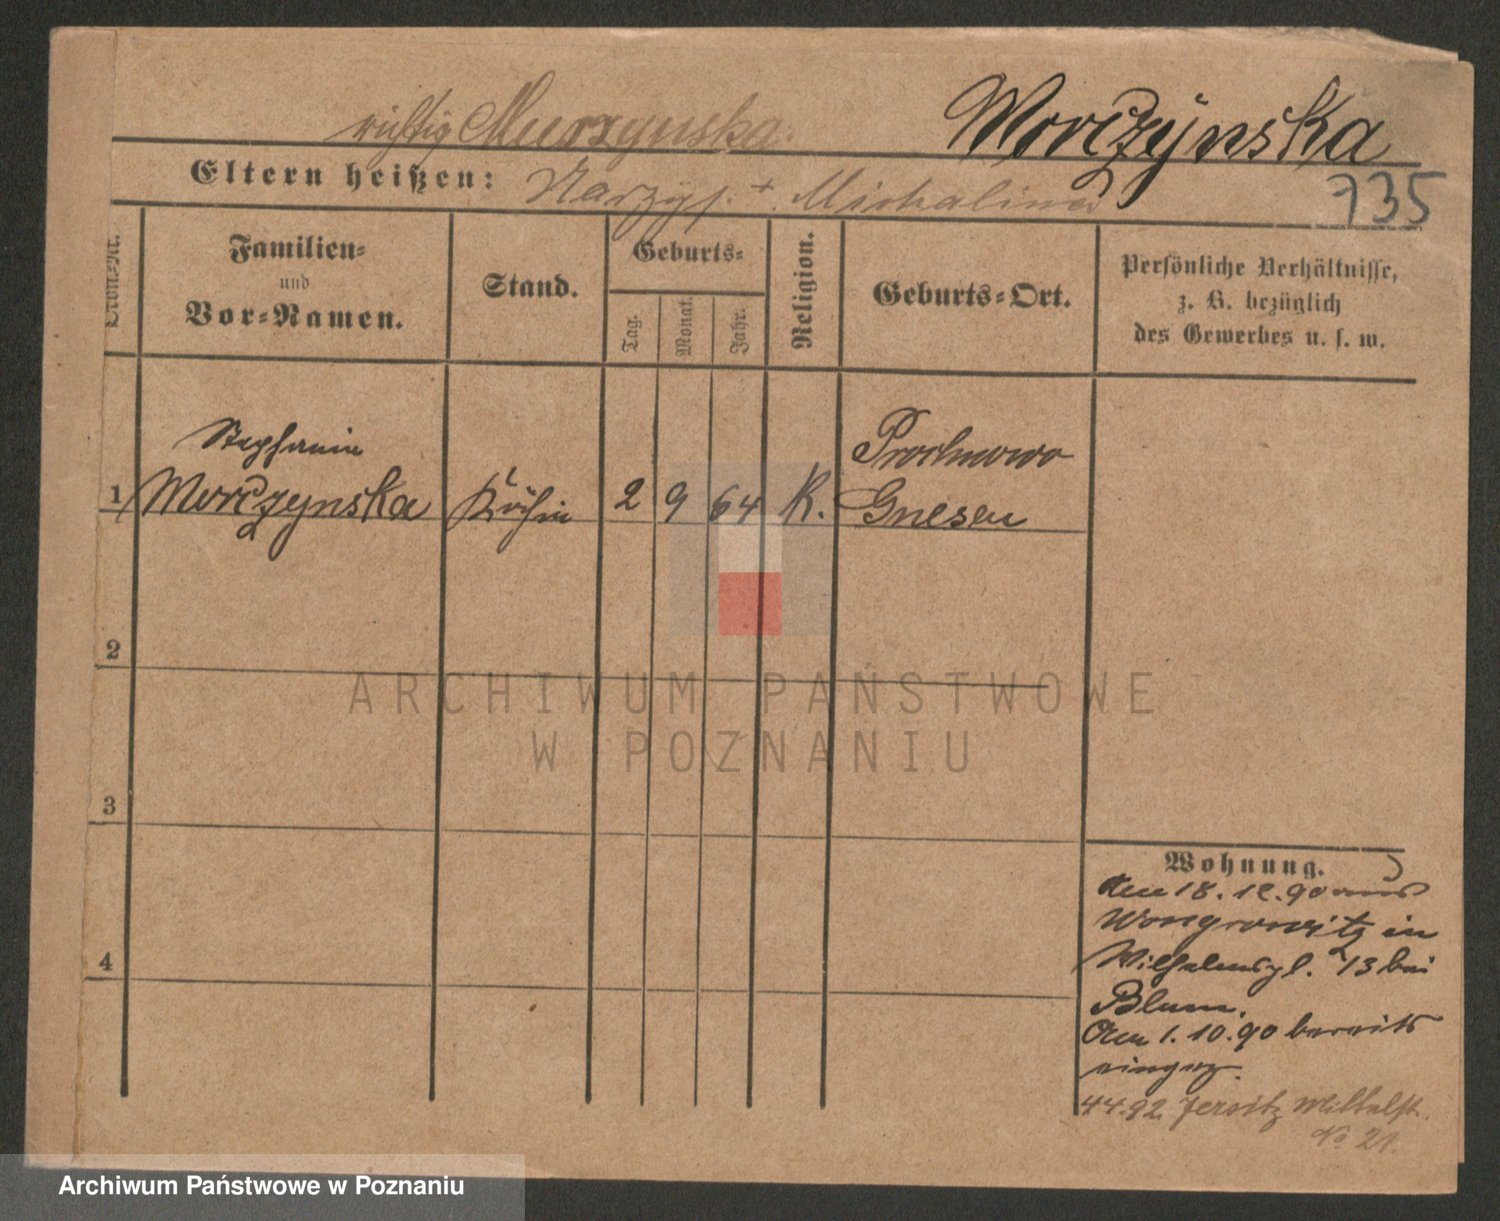 richtig Murzynska.
Worczynska
Eltern heißen: Narzys. + Michalina
735
Familien-
und
Vor-Namen.
Stand.
Geburts-
Tag.
Monat.
Jahr.
Religion.
Geburts-Ort.
Persönliche Verhältnisse,
z. B. bezüglich
des Gewerbes u. s. w.
1
Stephanie
Worczynska
Köchin
2
9
64
K.
Prochnowo
Gnesen
2
3
4
Wohnung.
Am 18. 12. 90 aus
Wongrowitz in
Wilhelmspl. 13 bei
Blum.
Am 1. 10. 90 bereits
eingez.
4.4.92. Jersitz
No 21.
ARCHIWUM PAŃSTWOWE
W POZNANIU
Archiwum Państwowe w Poznaniu